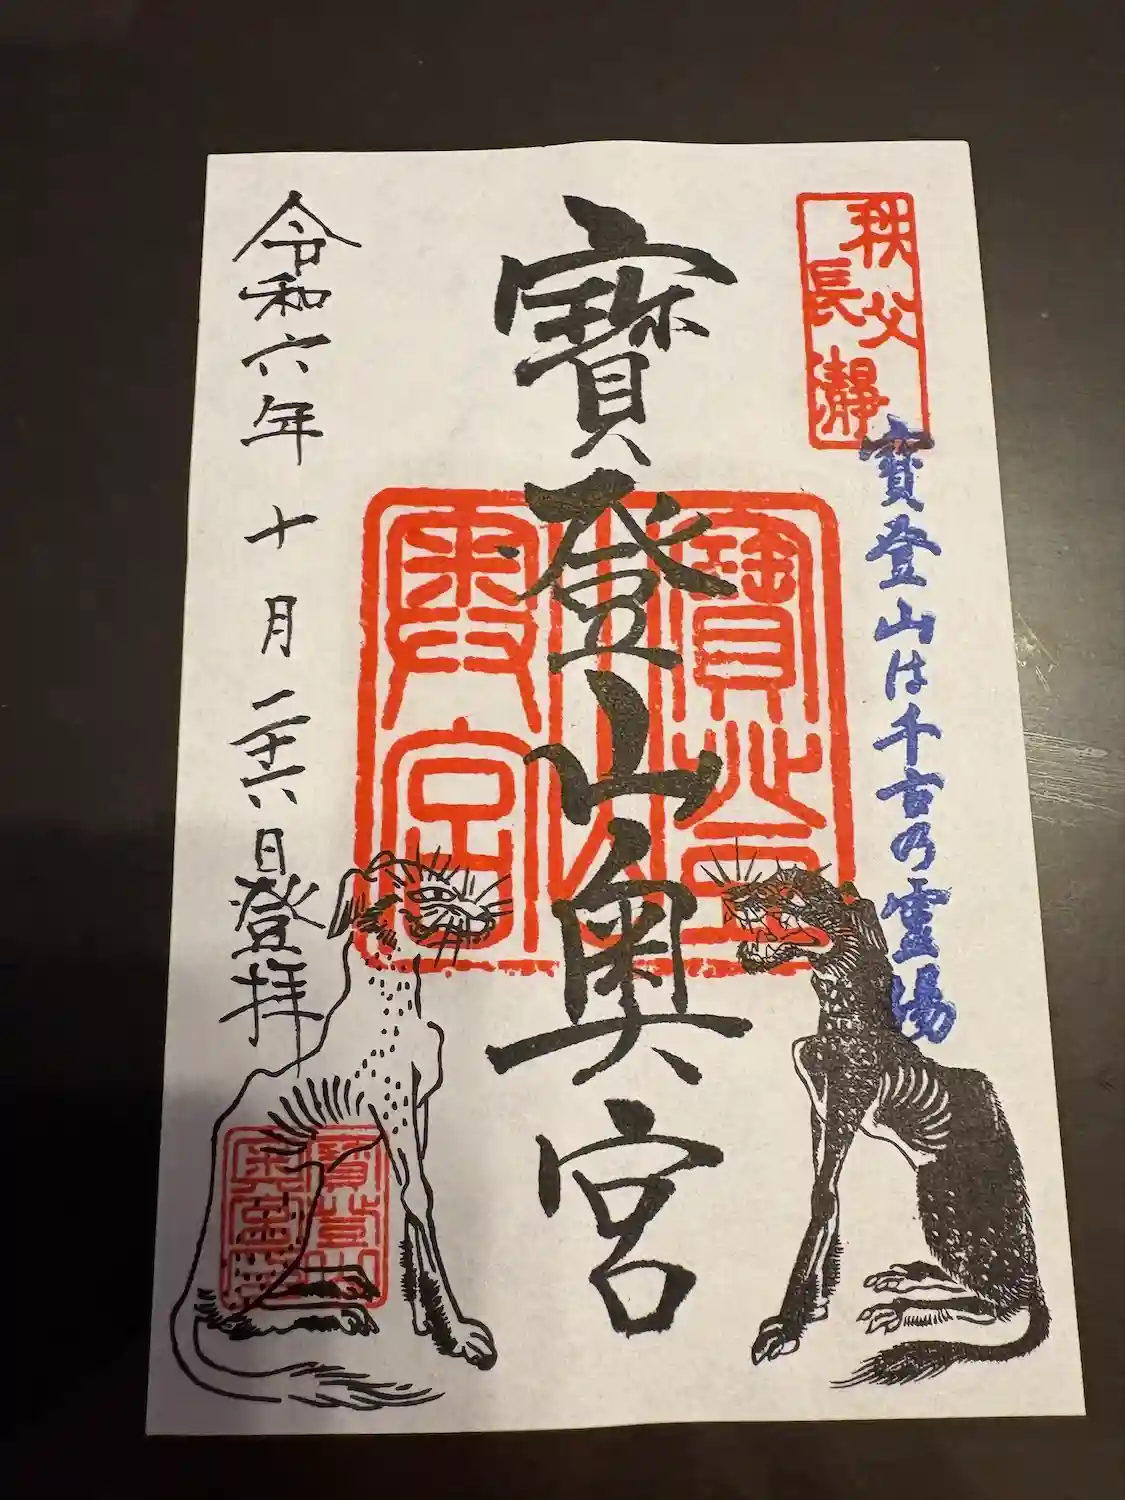 秩父
長瀞
寶登山は千古の霊場
寶登山奥宮
寶登
山
奥宮
令和六年十月二十六日登拝